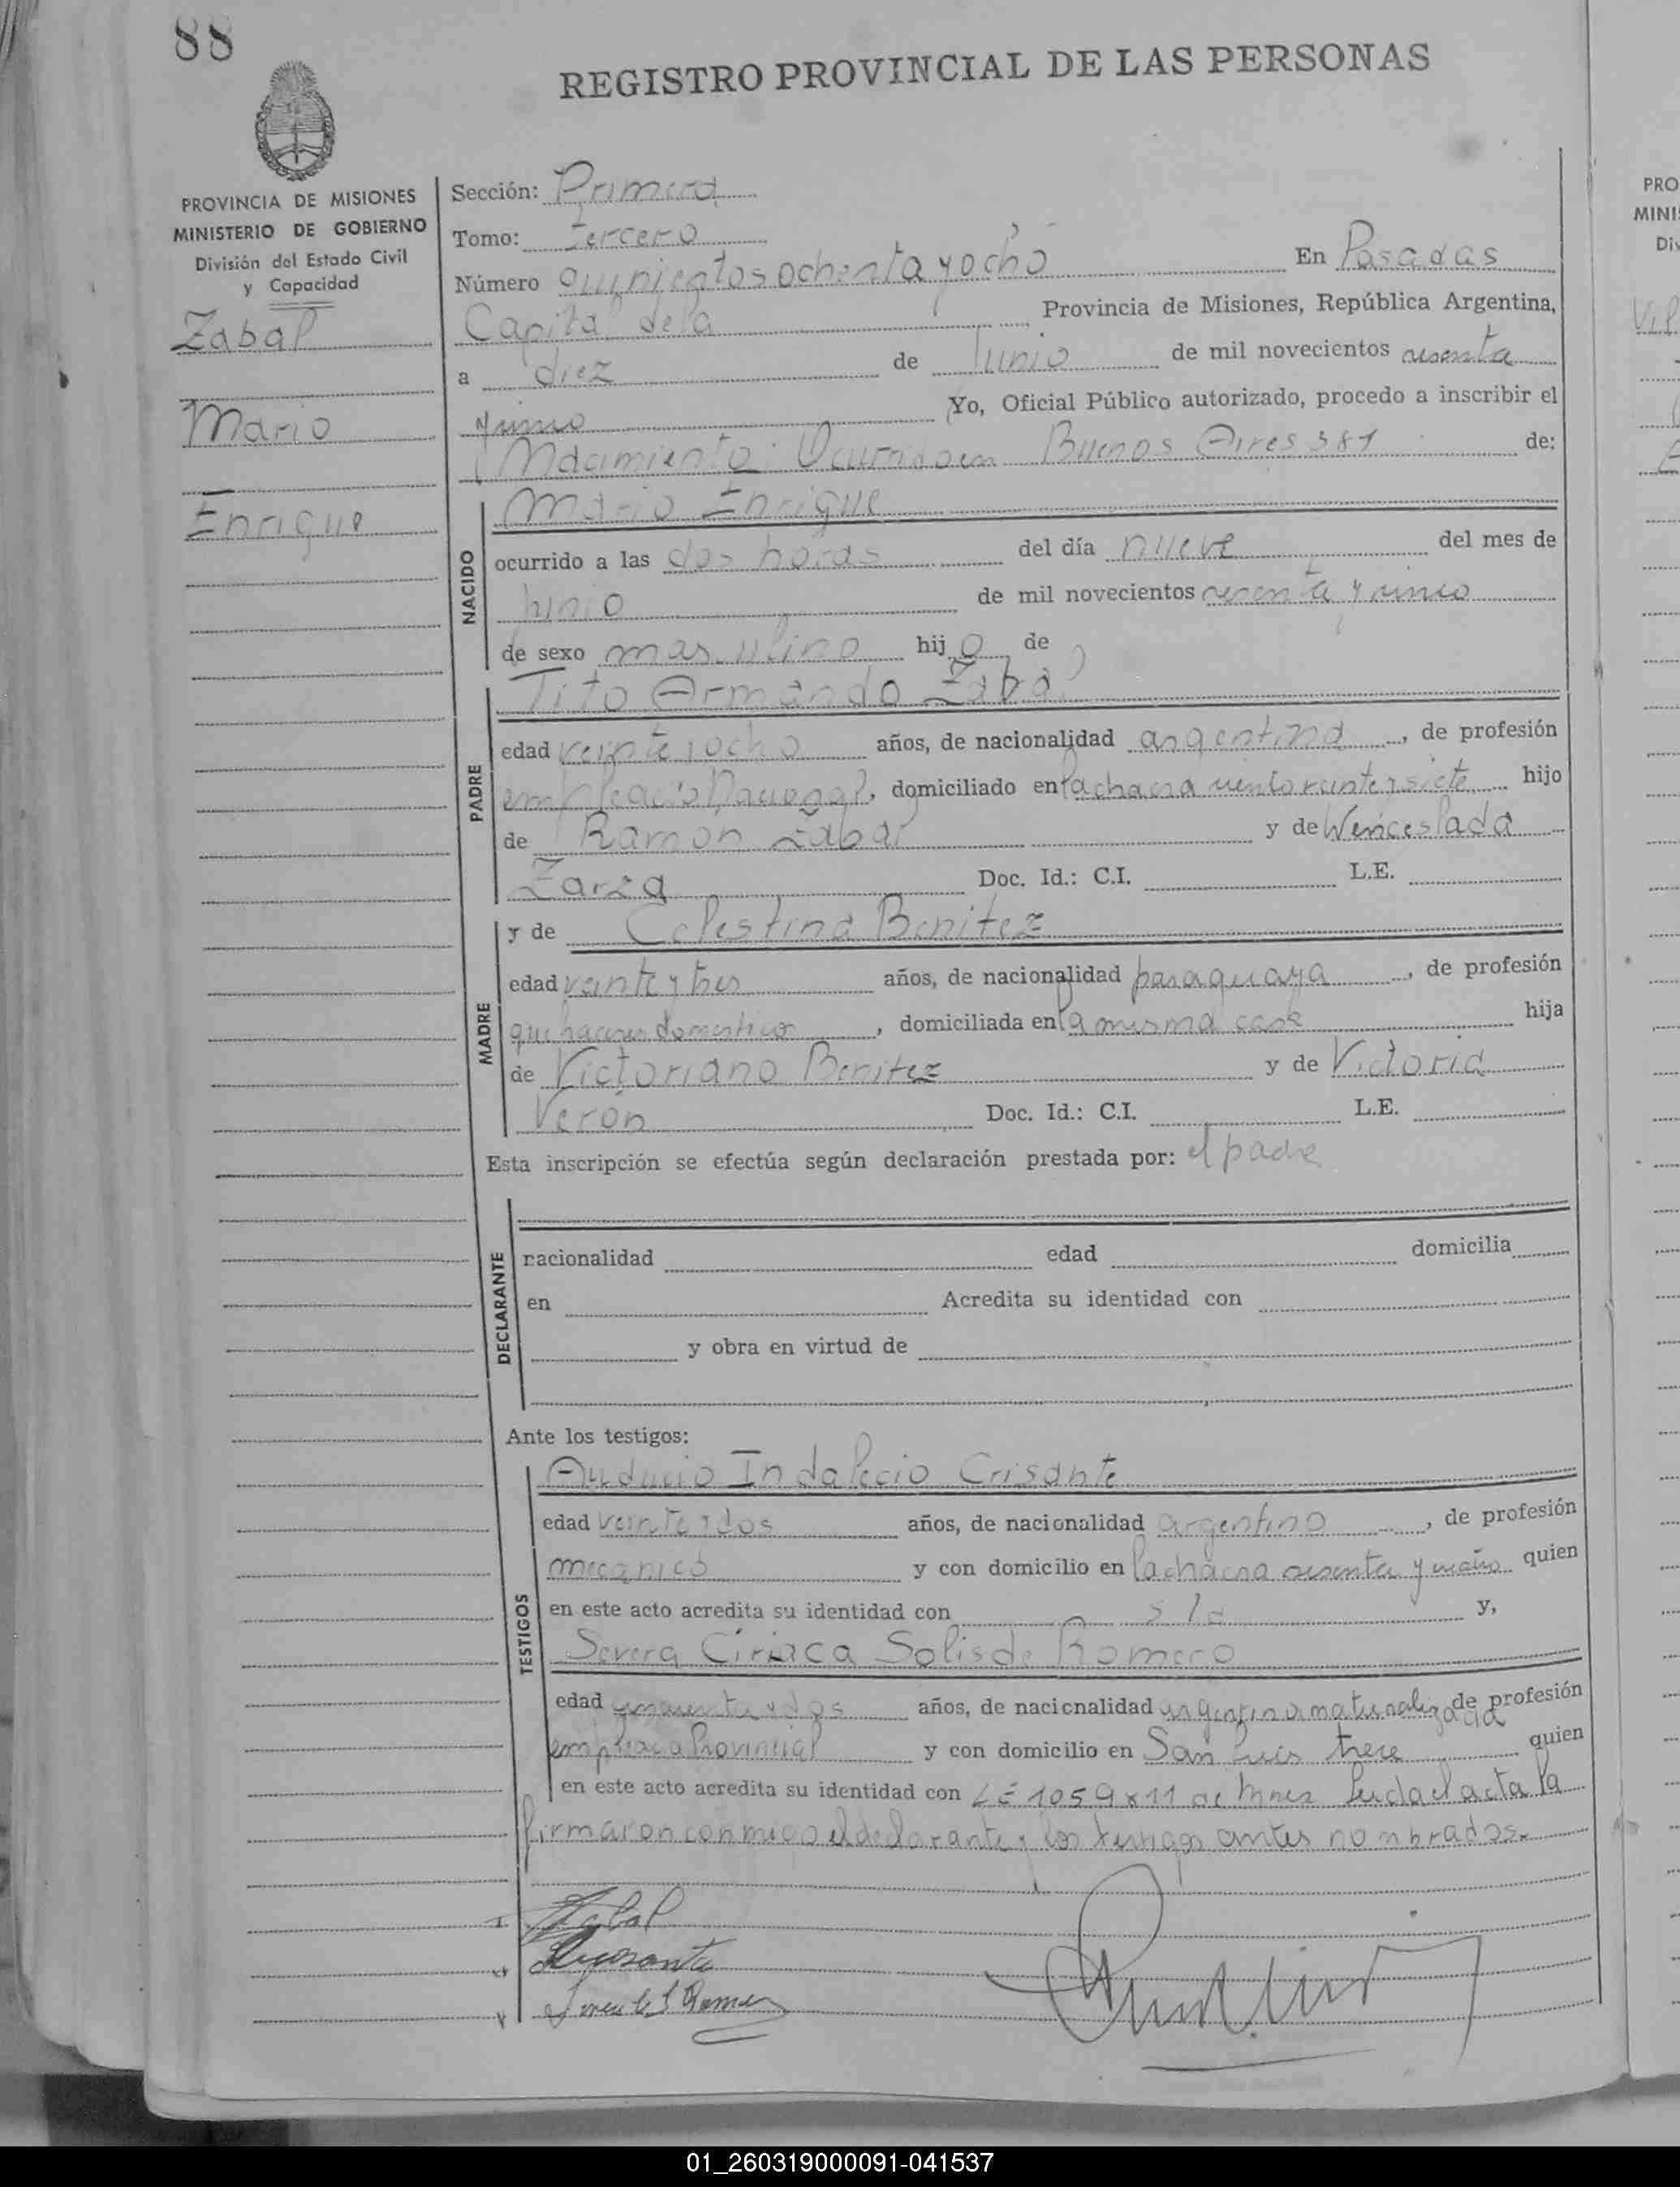 88
REGISTRO PROVINCIAL DE LAS PERSONAS
PROVINCIA DE MISIONES
MINISTERIO DE GOBIERNO
División del Estado Civil
y Capacidad
Zabal
Mario
Enrique
Sección: Primera
Tomo: tercero
Número quinientos ochenta y ocho En Posadas
Capital de la Provincia de Misiones, República Argentina,
a diez de Junio de mil novecientos sesenta
y cinco Yo, Oficial Público autorizado, procedo a inscribir el
Nacimiento Ocurrido en Buenos Aires 381 de:
NACIDO
Mario Enrique
ocurrido a las dos horas del día nueve del mes de
Junio de mil novecientos sesenta y cinco
de sexo masculino hijo de
PADRE
Tito Armando Zabal
edad veinte y ocho años, de nacionalidad argentina, de profesión
empleado, domiciliado en la chacra ciento veinte y siete hijo
de Ramón Zabal y de Wenceslada
Zarza Doc. Id.: C.I. L.E.
MADRE
y de Celestina Benitez
edad veinte y tres años, de nacionalidad paraguaya, de profesión
quehaceres domesticos, domiciliada en la misma casa hija
de Victoriano Benitez y de Victoria
Verón Doc. Id.: C.I. L.E.
Esta inscripción se efectúa según declaración prestada por: el padre
DECLARANTE
nacionalidad edad domicilia
en Acredita su identidad con
y obra en virtud de
Ante los testigos:
TESTIGOS
Indalecio Crisante
edad veinte y dos años, de nacionalidad argentino, de profesión
mecanico y con domicilio en la chacra sesenta y quien
en este acto acredita su identidad con y,
Severa Ciriaca Solis de Romero
edad cincuenta y dos años, de nacionalidad argentina naturalizada de profesión
empleada Provincial y con domicilio en San Luis trece quien
en este acto acredita su identidad con Leida el acta la
firmaron conmigo el declarante y los testigos antes nombrados.
Zabal
01_260319000091-041537